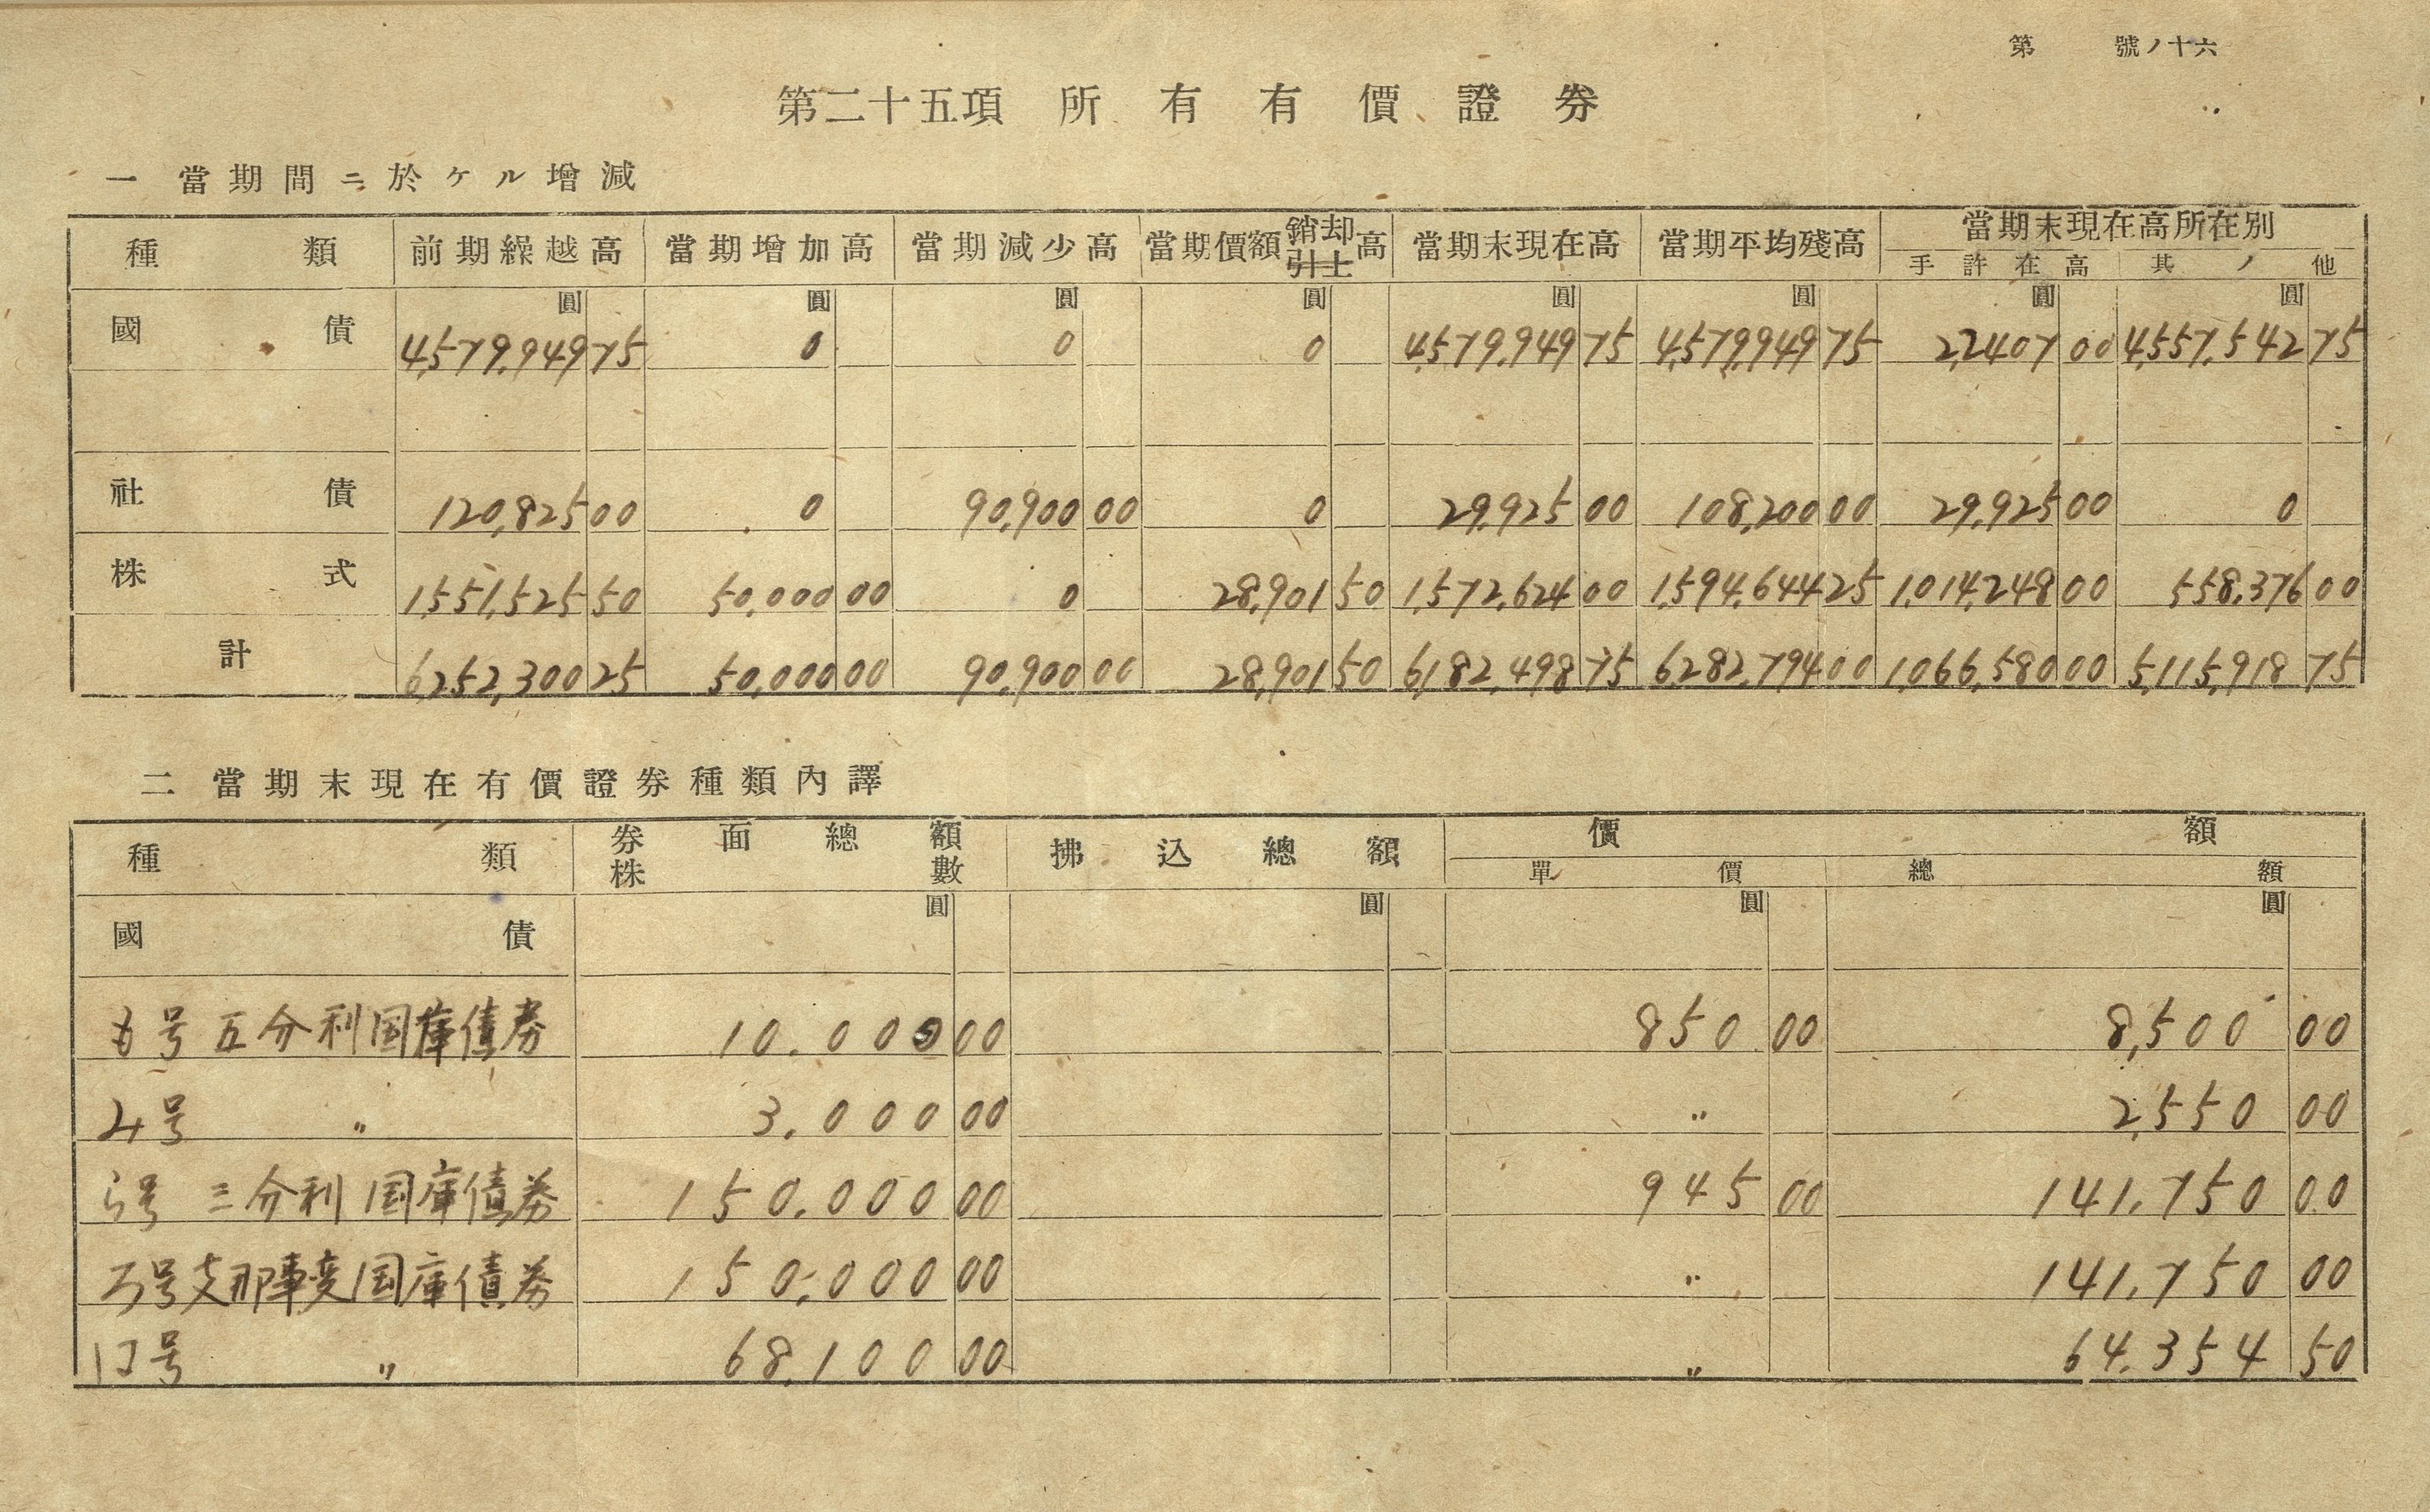 第　號ノ十六
第二十五項　所有有價證券
一　當期間ニ於ケル增減
種類　前期繰越高　當期增加高　當期減少高　當期價額銷却引上高　當期末現在高　當期平均殘高　當期末現在高所在別
手許在高　其ノ他
圓　圓　圓　圓　圓　圓　圓　圓
國債　4,579,949 75　0　0　0　4,579,949 75　4,579,949 75　22,407 00　4,557,542 75
社債　120,825 00　0　90,900 00　0　29,925 00　108,200 00　29,925 00　0
株式　1,551,525 50　50,000 00　0　28,901 50　1,572,624 00　1,594,644 25　1,014,248 00　558,376 00
計　6,252,300 25　50,000 00　90,900 00　28,901 50　6,182,498 75　6,282,794 00　1,066,580 00　5,115,918 75
二　當期末現在有價證券種類內譯
種類　券面總額　株數　拂込總額　價額
單價　總額
圓　圓　圓　圓
國債
も号 五分利国庫債券　10.000 00　850 00　8,500 00
み号　〃　3.000 00　〃　2,550 00
う号 三分利国庫債券　150.000 00　945 00　141.750 00
ろ号支那事変国庫債券　150.000 00　〃　141.750 00
は号　〃　68,100 00　〃　64.354 50